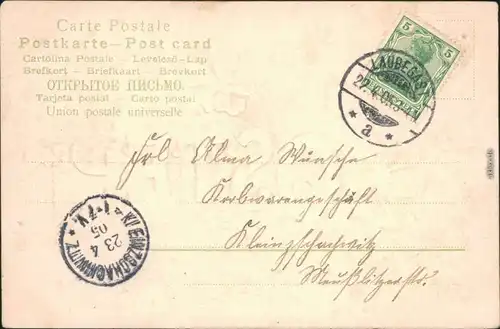 Carte Postale
Postkarte – Post card
Cartolina Postale - Levelező-Lap
Brefkort - Briefkaart - Brevkort
ОТКРЫТОЕ ПИСЬМО.
Tarjeta postal - Carto postal
Union postale universelle
5 5
LAUBEGAST
* a *
Frl Alma Wunsche
Korbwarengeschäft
Kleinzschachwitz
Meußlitzerstr.
KLEINZSCHACHWITZ
23 4
05